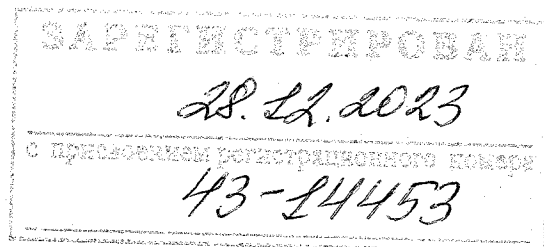 ЗАРЕГИСТРИРОВАН
28.12.2023
с присвоением регистрационного номера
43-14453